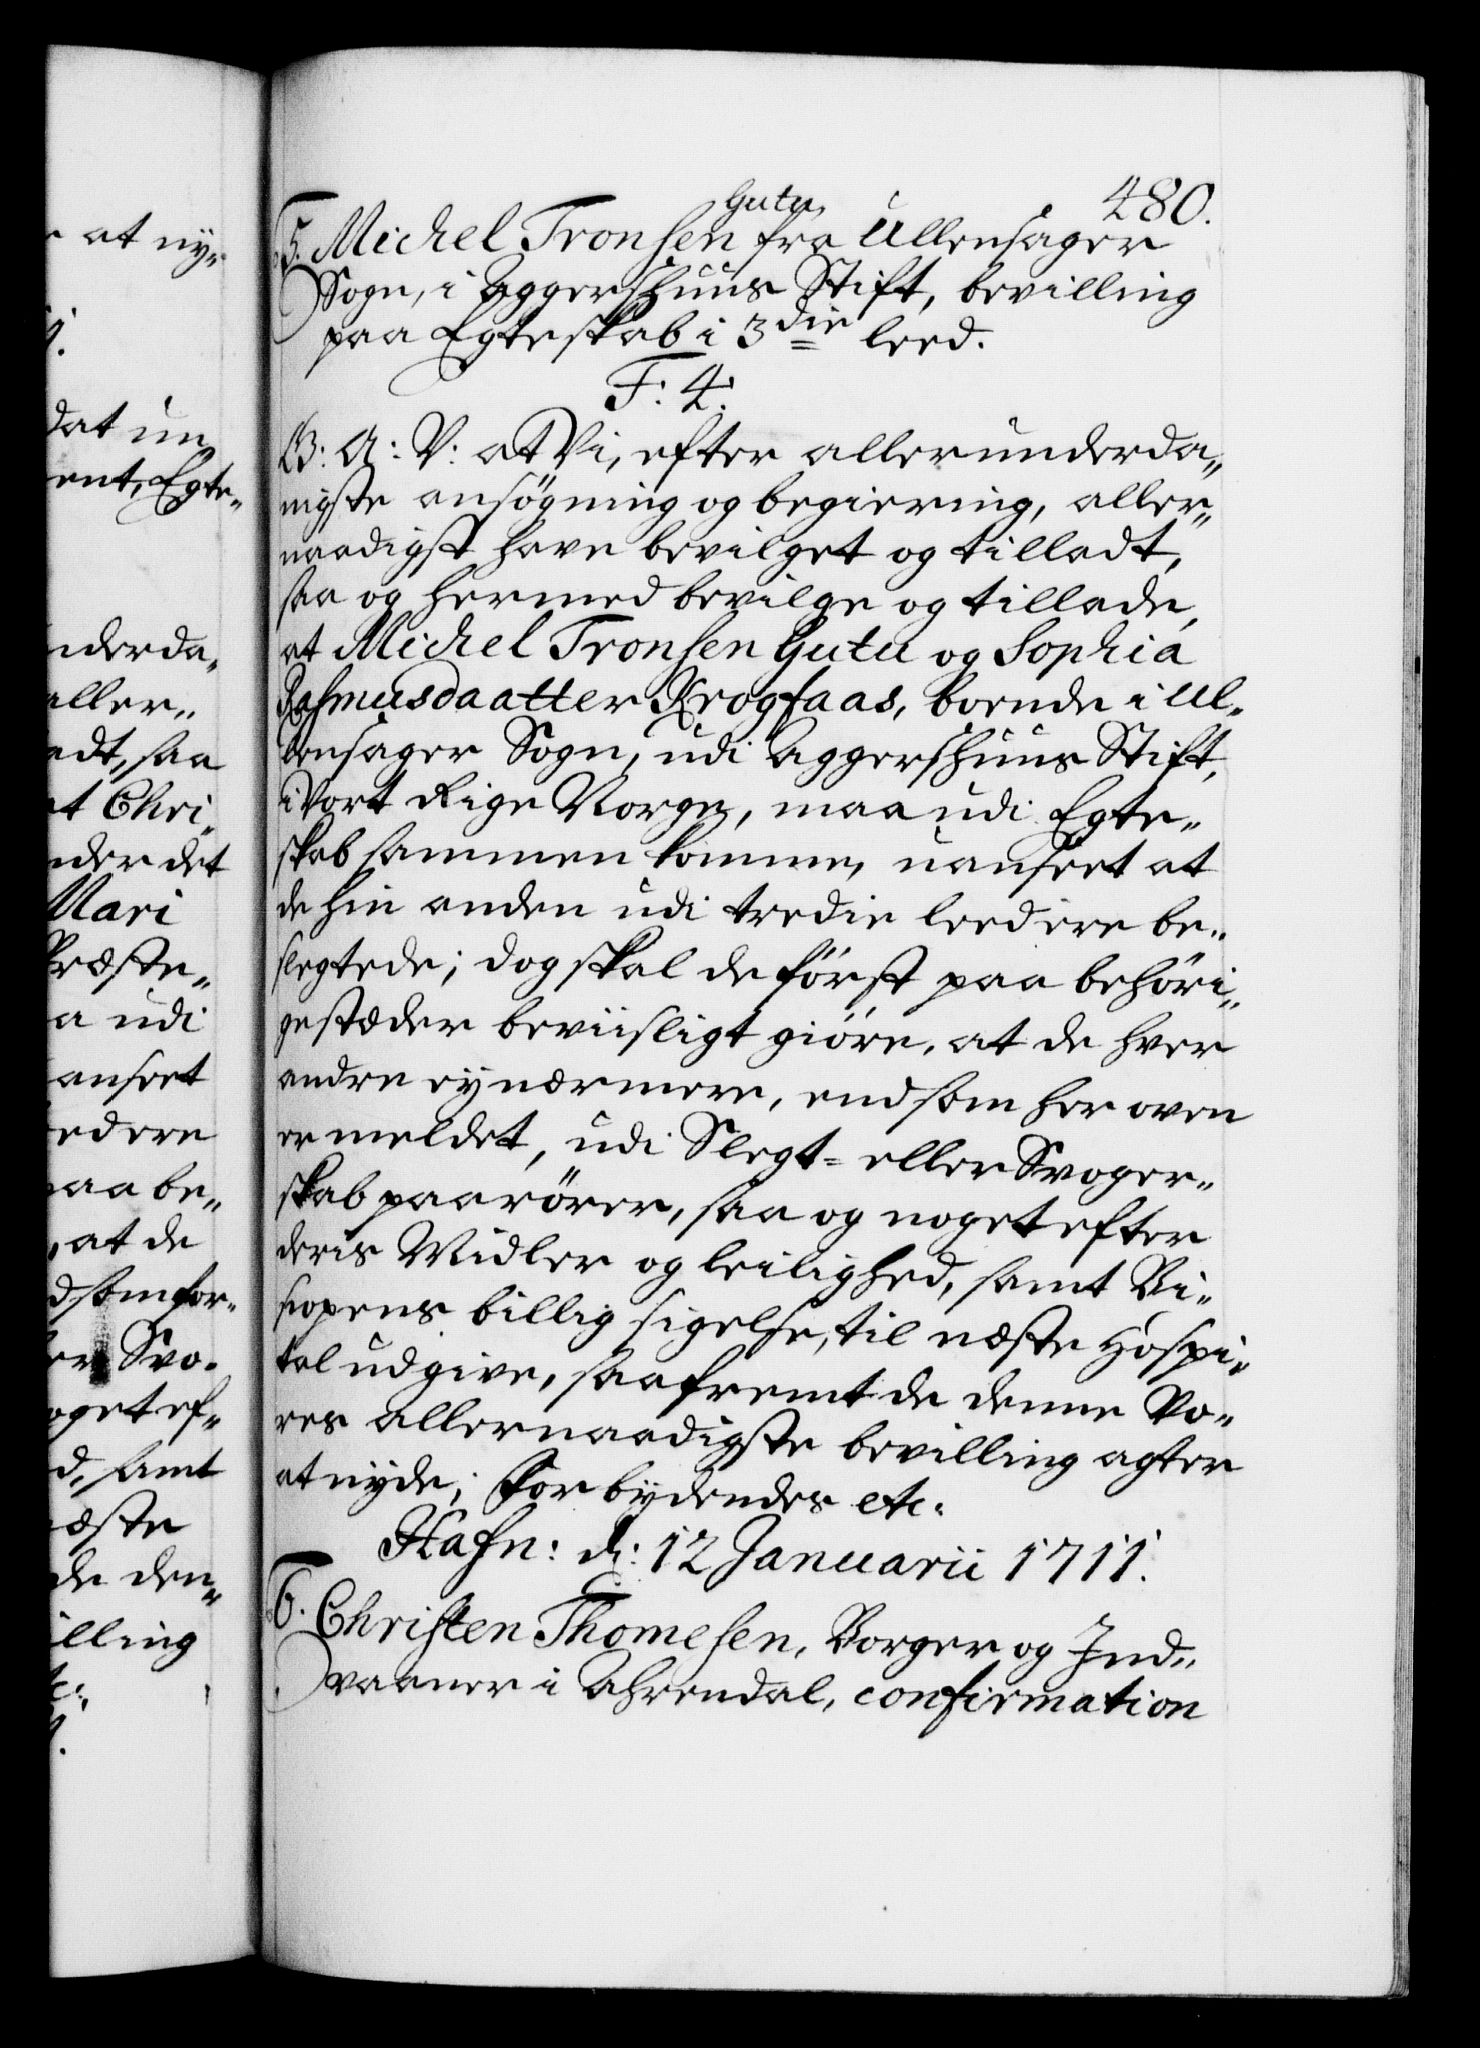 480.
5. Michel Tronsen Gutu, fra Ullensager
Sogn, i Aggershuus Stift, bevilling
paa Egteskab i 3die leed.
F: 4.
G: A: V: at Vi, efter allerunderda„
nigste ansøgning og begiering, aller„
naadigst have bevilget og tilladt,
saa og hermed bevilge og tillade,
at Michel Tronsen Gutu og Sophia
Rasmusdaatter Krogsaas, boende i Ul„
lensager Sogn, udi Aggershuus Stift,
i Vort Rige Norge, maa udi Egte„
skab sammen komme, uanseet at
de hin anden udi tredie leed ere be„
slegtede; dog skal de først paa behöri„
gestæder beviisligt giöre, at de hver
andre ey nærmere, end som her oven
er meldet, udi Slegt- eller Svoger„
skab paarörer, saa og noget efter
deris Midler og leilighed, samt Bi„
scopens billig sigelse, til næste Hospi„
tal udgive, saafremt de denne Vo„
res allernaadigste bevilling agter
at nyde; Forbydendes etc.
Hafn: d: 12 Januarii 1711.
6. Christen Thomesen, Borger og Ind„
vaaner i Ahrendal, confirmation
at ny„
dat un„
ent, Egte„
nderda„
aller„
adt, saa
at Chri„
nder det
Mari
Præste„
a udi
anseet
leed ere
paa be„
at de
d som for„
er Svo„
noget ef„
d, samt
næste
de den„
illing